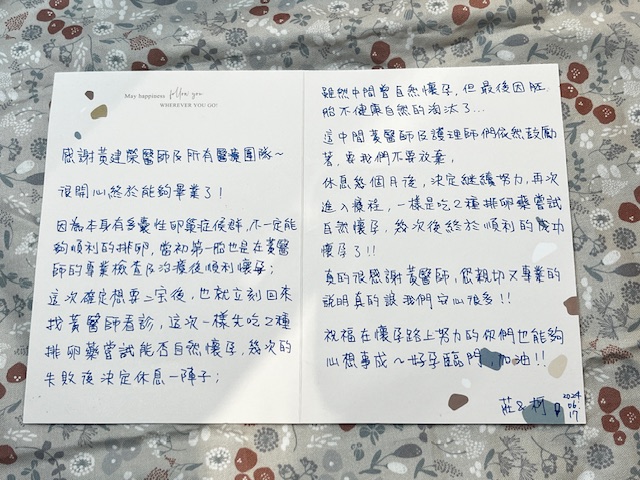 May happiness follow you
WHEREVER YOU GO!
感謝黃建榮醫師及所有醫療團隊~
很開心終於能夠畢業了!
因為本身有多囊性卵巢症候群,不一定能
夠順利的排卵,當初第一胎也是在黃醫
師的專業檢查及治療後順利懷孕;
這次確定想要二宝後,也就立刻回來
找黃醫師看診,這次一樣先吃2種
排卵藥嘗試能否自然懷孕,幾次的
失敗後決定休息一陣子;
雖然中間曾自然懷孕,但最後因胚
胎不健康自然的淘汰了...
這中間黃醫師及護理師們依然鼓勵
著,要我們不要放棄,
休息幾個月後,決定繼續努力,再次
進入療程,一樣是吃2種排卵藥嘗試
自然懷孕,幾次後終於順利的成功
懷孕了!!
真的很感謝黃醫師,您親切又專業的
說明真的讓我們安心很多!!
祝福在懷孕路上努力的你們也能夠
心想事成~好孕臨門,加油!!
莊&柯
2024
06.
17